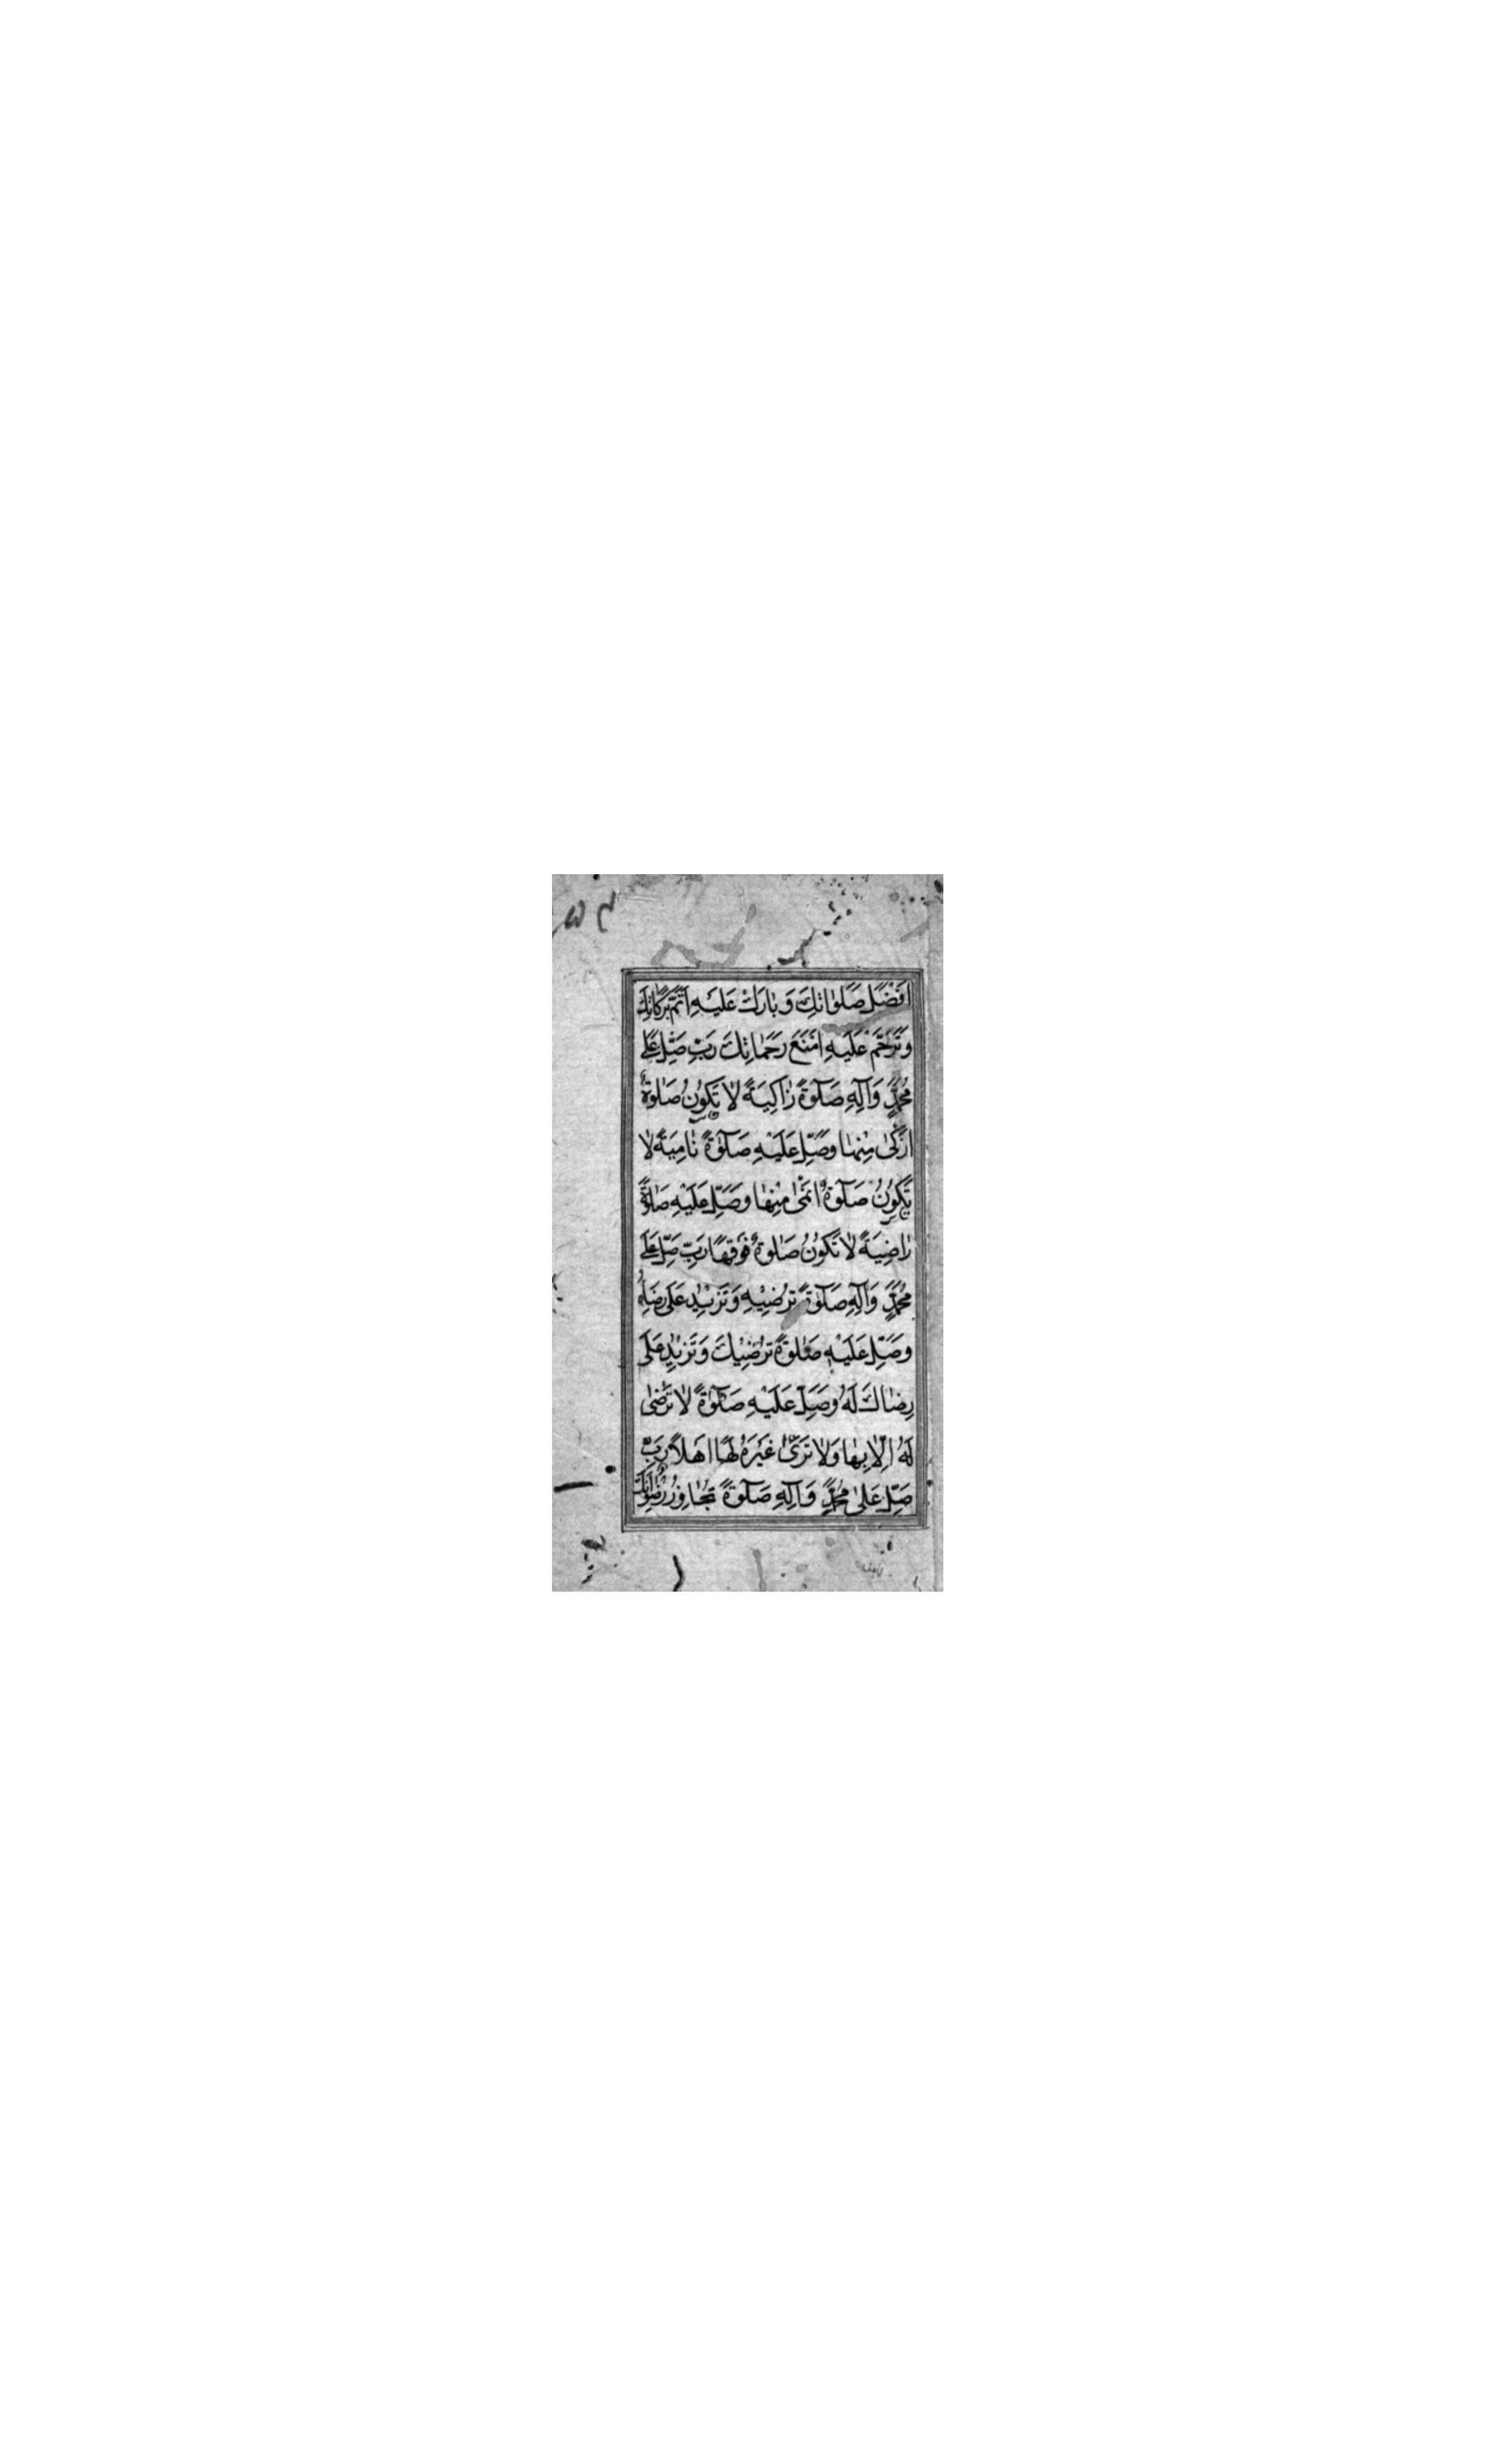 اَفْضَلَ صَلَوٰاتِكَ وَ بٰارِكْ عَلَيْهِ اَتَمَّ بَرَكٰاتِكَ
وَتَرَحَّمْ عَلَيْهِ اَمْتَعَ رَحَمٰاتِكَ رَبِّ صَلِّ عَلٰى
مُحَمَّدٍ وَآلِهِ صَلٰوةً زٰاكِيَةً لاٰ تَكُونُ صَلٰوةٌ
اَزْكٰى مِنْهٰا وَصَلِّ عَلَيْهِ صَلٰوةً نٰامِيَةً لاٰ
تَكُونُ صَلٰوةٌ اَنْمٰى مِنْهٰا وَصَلِّ عَلَيْهِ صَلٰوةً
رٰاضِيَةً لاٰ تَكُونُ صَلٰوةٌ فَوْقَهٰا رَبِّ صَلِّ عَلٰى
مُحَمَّدٍ وَآلِهِ صَلٰوةً تُرْضِيْهِ وَتَزِيْدُ عَلٰى رِضَاهُ
وَصَلِّ عَلَيْهِ صَلٰوةً تُرْضِيْكَ وَتَزِيْدُ عَلٰى
رِضٰاكَ لَهُ وَصَلِّ عَلَيْهِ صَلٰوةً لاٰ تَرْضٰى
لَهُ اِلاّٰ بِهٰا وَلاٰ تَرٰى غَيْرَهُ لَهٰا اَهْلاً رَبِّ
صَلِّ عَلٰى مُحَمَّدٍ وَآلِهِ صَلٰوةً تُجٰاوِزُ رِضْوٰانَكَ